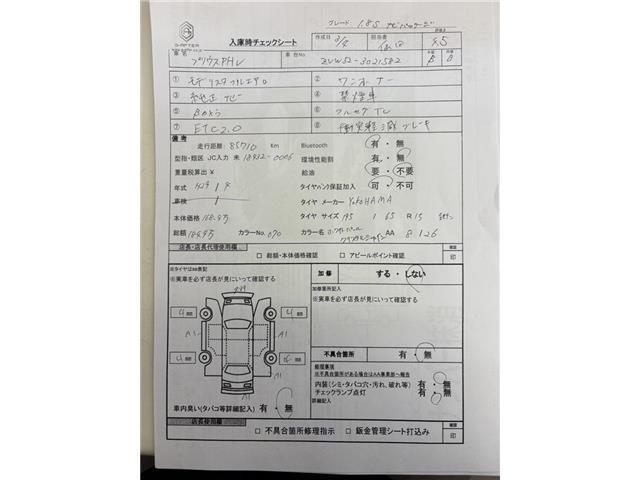 グレード 1.8S ナビパッケージ
G-AFTER
入庫時チェックシート 作成日 3/8 担当者
車名 プリウスPHV 車台No ZVW52-3021582
① モデリスタフルエアロ ② ワンオーナー
③ 純正ナビ ④ 禁煙車
⑤ Bカメラ ⑥ フルセグTV
⑦ ETC2.0 ⑧ 衝突軽減ブレーキ
備考
走行距離: 85710 Km Bluetooth 有・無
型指・類区 JC入力 未 18932-0006 環境性能割 有・無
重量税算出 ¥ 給油 要・不要
年式 タイヤパンク保証加入 可・不可
車検 タイヤ メーカー YOKOHAMA
本体価格 168.9万 タイヤ サイズ 195 / 65 R 15
総額 184.9万 カラーNo. 070 カラー名 ホワイトパールクリスタルシャイン AA 8126
店長・店長代理使用欄 確認
□ 総額・本体価格確認 □ アピールポイント確認 印
※タイヤは㎜表記
※実車を必ず店長が見にいって確認する
加修 する・しない
加修箇所記入
※実車を必ず店長が見にいって確認する
A1 A1
不具合箇所 有・無
修理事項
※不具合箇所がある場合はAA事業部へ報告
内装(シミ・タバコ穴・汚れ、破れ等) 有・無
チェックランプ点灯 有・無
詳細記入
車内臭い(タバコ等詳細記入) 有・無
店長使用欄 確認
□ 不具合箇所修理指示 □ 鈑金管理シート打込み 印